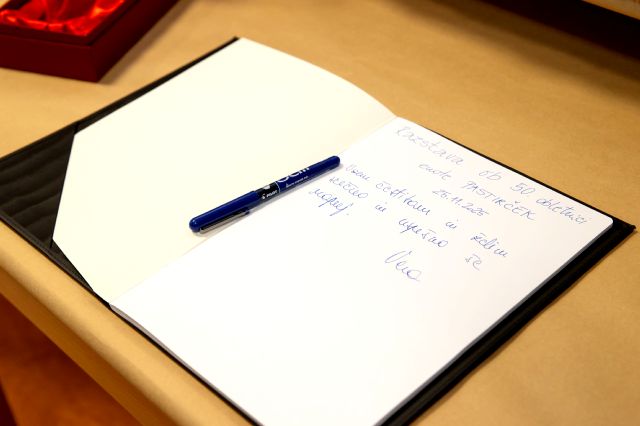 Razstava ob 50 obletnici
enote PASTIRČEK
25.11.2025
Vsem čestitam in želim
srečno in uspešno še
naprej
PILOT